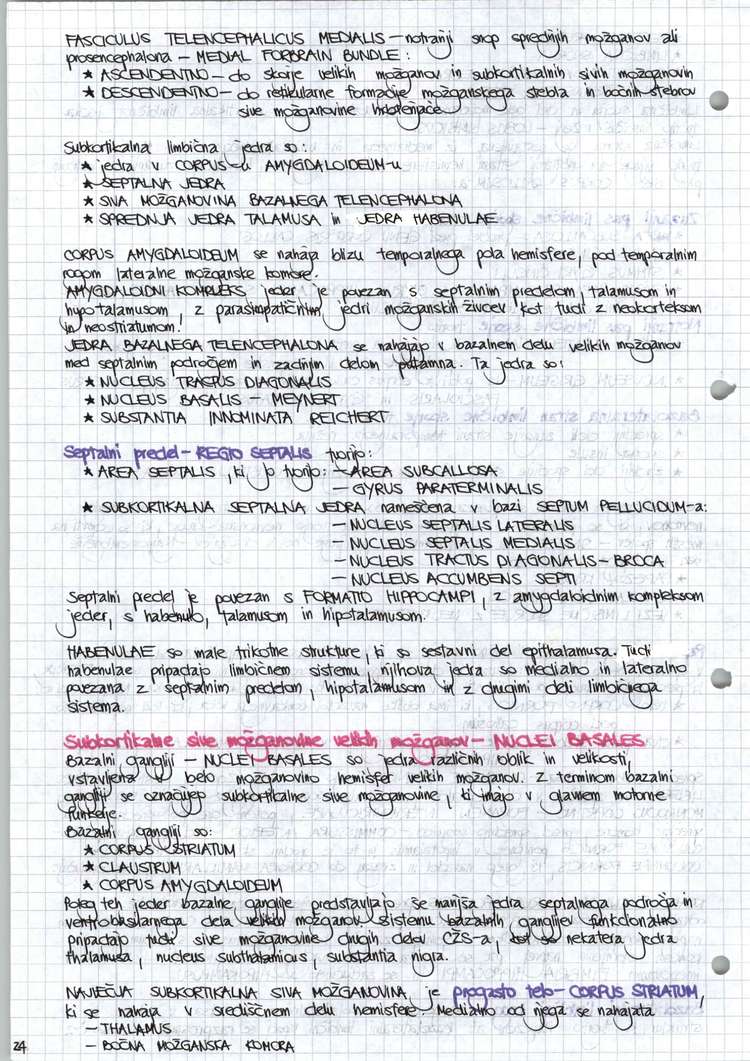 FASCICULUS TELENCEPHALICUS MEDIALIS – notranji snop sprednjih možganov ali
prosencephalona – MEDIAL FORBRAIN BUNDLE :
* ASCENDENTNO – do skorje velikih možganov in subkortikalnih sivih možganovin
* DESCENDENTNO – do retikularne formacije možganskega stebla in bočnih stebrov
sive možganovine hrbtenjače
Subkortikalna limbična jedra so:
* jedra v CORPUS-u AMYGDALOIDEUM-u
* SEPTALNA JEDRA
* SIVA MOŽGANOVINA BAZALNEGA TELENCEPHALONA
* SPREDNJA JEDRA TALAMUSA in JEDRA HABENULAE
CORPUS AMYGDALOIDEUM se nahaja blizu temporalnega pola hemisfere, pod temporalnim
rogom lateralne možganske komore.
AMYGDALOIDNI KOMPLEKS jeder je povezan s septalnim predelom, talamusom in
hypotalamusom, z parasimpatičnimi jedri možganskih živcev kot tudi z neokorteksom
in neostriatumom.
JEDRA BAZALNEGA TELENCEPHALONA se nahajajo v bazalnem delu velikih možganov
med septalnim področjem in zadnjim delom putamna. Ta jedra so:
* NUCLEUS TRACTUS DIAGONALIS
* NUCLEUS BASALIS – MEYNERT
* SUBSTANTIA INNOMINATA REICHERT
Septalni predel – REGIO SEPTALIS tvorijo:
* AREA SEPTALIS, ki jo tvorijo: – AREA SUBCALLOSA
– GYRUS PARATERMINALIS
* SUBKORTIKALNA SEPTALNA JEDRA nameščena v bazi SEPTUM PELLUCIDUM-a:
– NUCLEUS SEPTALIS LATERALIS
– NUCLEUS SEPTALIS MEDIALIS
– NUCLEUS TRACTUS DIAGONALIS – BROCA
– NUCLEUS ACCUMBENS SEPTI
Septalni predel je povezan s FORMATIO HIPPOCAMPI, z amygdaloidnim kompleksom
jeder, s habenulo, talamusom in hipotalamusom.
HABENULAE so male trikotne strukture, ki so sestavni del epithalamusa. Tudi
habenulae pripadajo limbičnem sistemu, njihova jedra so medialno in lateralno
povezana z septalnim predelom, hipotalamusom in z drugimi deli limbičnega
sistema.
Subkortikalne sive možganovine velikih možganov – NUCLEI BASALES
Bazalni gangliji – NUCLEI BASALES so jedra različnih oblik in velikosti,
vstavljena v belo možganovino hemisfer velikih možganov. Z terminom bazalni
gangliji se označujejo subkortikalne sive možganovine, ki imajo v glavnem motorne
funkcije.
Bazalni gangliji so:
* CORPUS STRIATUM
* CLAUSTRUM
* CORPUS AMYGDALOIDEUM
Poleg teh jeder bazalne ganglije predstavljajo še manjša jedra septalnega področja in
ventrobasilarnega dela velikih možganov. Sistemu bazalnih ganglijev funkcionalno
pripadajo tudi sive možganovine drugih delov CŽS-a, kot so nekatera jedra
thalamusa, nucleus subthalamicus, substantia nigra.
NAJVEČJA SUBKORTIKALNA SIVA MOŽGANOVINA je progasto telo – CORPUS STRIATUM,
ki se nahaja v središčnem delu hemisfere. Medialno od njega se nahajata
– THALAMUS
– BOČNA MOŽGANSKA KOMORA
24